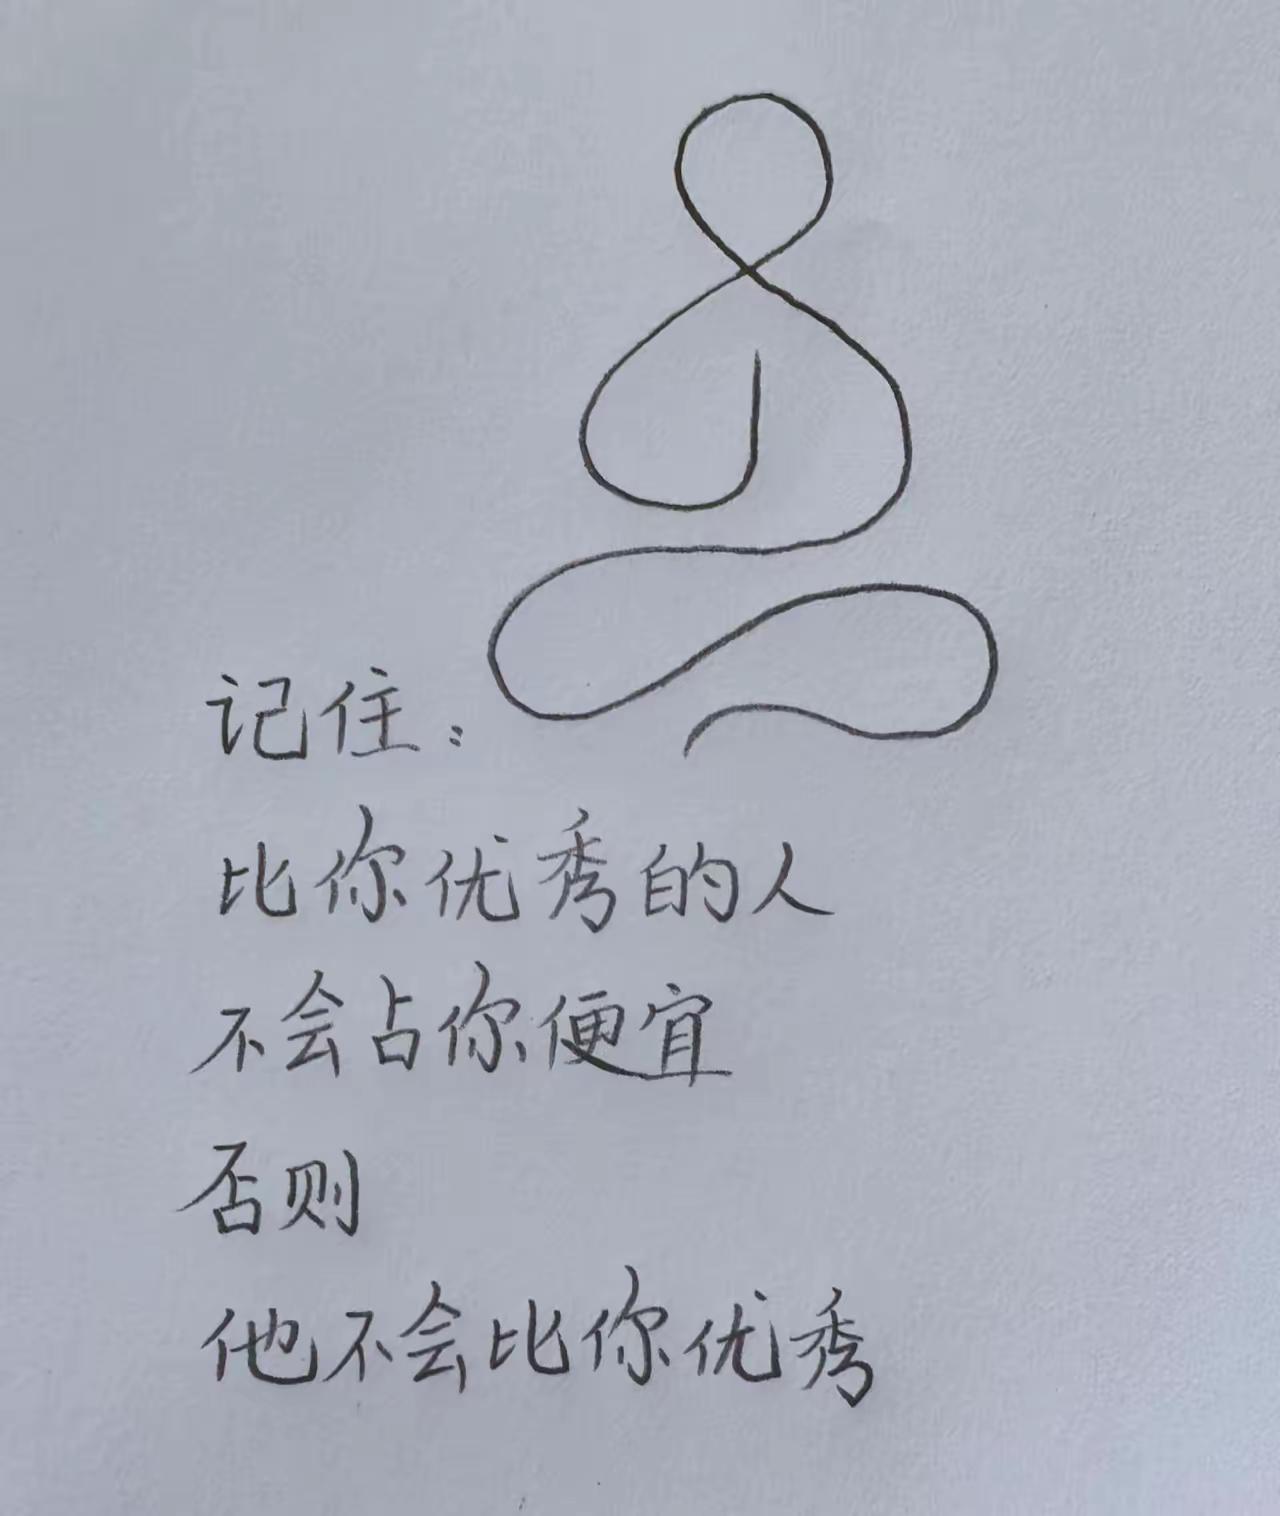 记住：
比你优秀的人
不会占你便宜
否则
他不会比你优秀